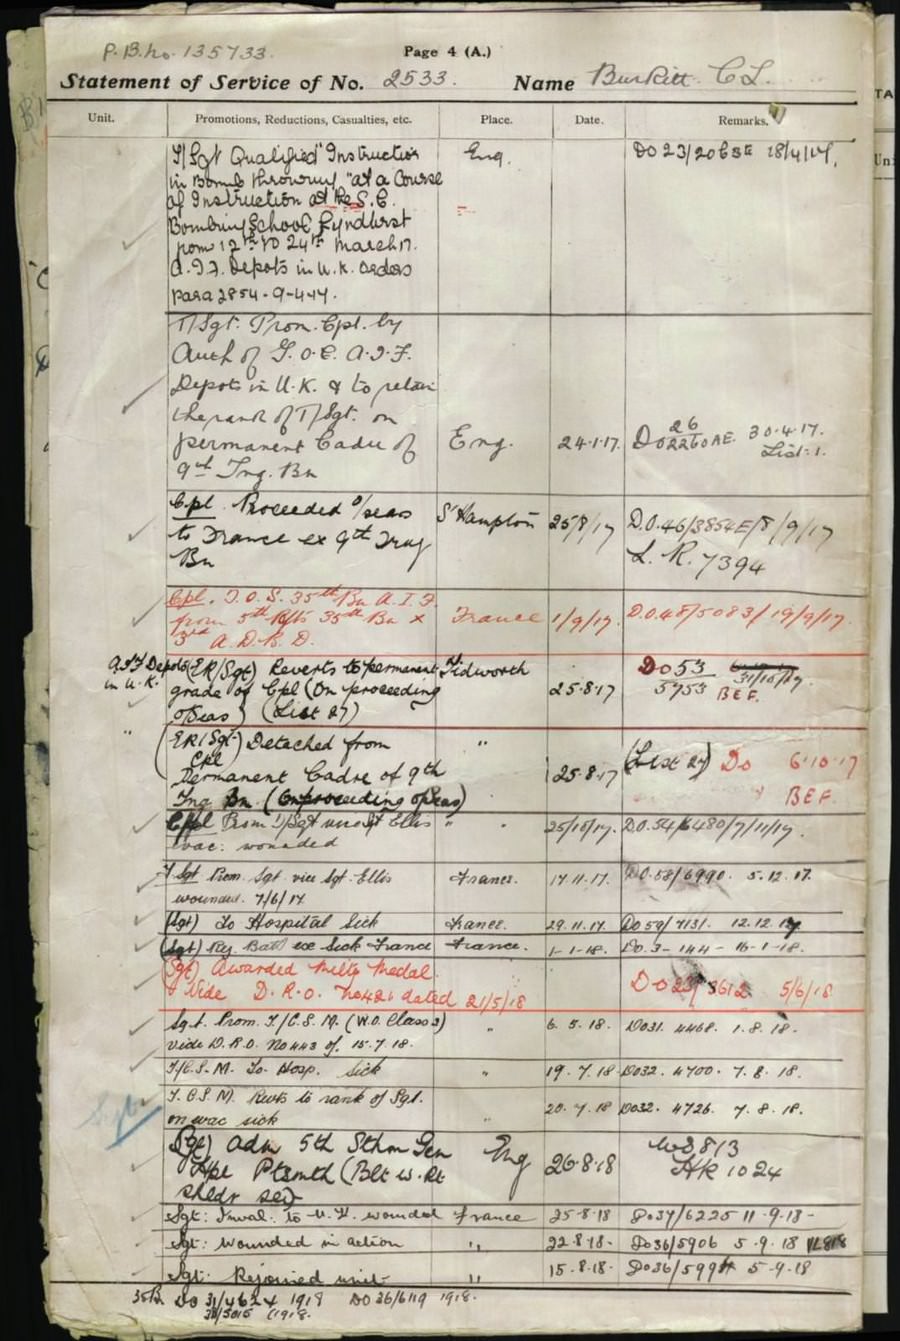 P.B. no. 135733.
Page 4 (A.)
Statement of Service of No. 2533. Name Burkitt C L.
Unit. Promotions, Reductions, Casualties, etc. Place. Date. Remarks.
T/Sgt Qualified "Instructor Eng. DO 23/20 18/4/17.
in Bomb throwing" at a Course
of Instruction at the S.C.
Bombing School Lyndhurst
from 12th to 24th March 17.
A.I.F. Depots in U.K. Orders
para 2854 - 9-4-17.
T/Sgt. Prom. Cpl. by
Auth of G.O.C. A.I.F.
Depots in U.K. & to retain
the rank of T/Sgt. on
permanent Cadre of Eng. 24.1.17. DO 26/2260 AE. 30.4.17.
9th Trng. Bn List. 1.
Cpl. Proceeded o/seas S'Hampton 25/8/17 D.O. 46/3854E/8/9/17
to France ex 9th Trng L.R. 7394
Bn
Cpl. T.O.S. 35th Bn A.I.F.
from 5th Rfts 35th Bn x France 1/9/17. D.O. 48/5083/19/9/17.
3rd A.D.B.D.
A.I.F Depots in U.K. (ER/Sgt) Reverts to permanent Tidworth DO 53/5753 31/10/17.
grade of Cpl (On proceeding 25.8.17 BEF.
o/seas) (List 27)
" (ER/Sgt) Detached from " (List 27) DO 6.10.17
Cpl
Permanent Cadre of 9th 25.8.17 BEF.
Trng Bn. (On proceeding o/seas)
Cpl Prom T/Sgt vice Sgt Ellis " " 25/10/17. D.O. 54/6480/7/11/17.
evac: wounded
T. Sgt Prom. Sgt vice Sgt. Ellis France. 17.11.17. DO. 58/6990. 5.12.17.
wounded. 7/6/17
(Sgt) To Hospital Sick France. 29.11.17. DO 59/7131. 12.12.17
(Sgt) Rej. Batt ex Sick France France. 1-1-18. DO. 3 - 144 - 16-1-18.
(Sgt) Awarded Milty Medal.
Vide D.R.O. No 421 dated 21/5/18 DO 3612 5/6/18
Sgt. Prom. T/C.S.M. (W.O. Class 3) " 6.5.18. DO31. 4468. 1.8.18.
vide D.R.O. No 443 of. 15.7.18.
T/C.S.M. To. Hosp. Sick " 19.7.18 DO32. 4700. 7.8.18.
T.C.S.M. Rvts to rank of Sgt. 20.7.18 DO32. 4726. 7.8.18.
on evac sick "
(Sgt) adm 5th Sthm Gen Eng 26.8.18 W3813
Hpl Ptsmth (Blt w. Rt HR 1024
shldr sev)
Sgt: Inval: to U.K. wounded France 25-8-18 DO37/6225 11-9-18-
Sgt: wounded in action " 22-8-18- DO36/5906 5.9.18
Sgt: Rejoined unit " 15.8.18- DO36/5994 5-9-18
35Bn DO 31/4624 1918 DO 36/6119 1918.
38/5015 1918.